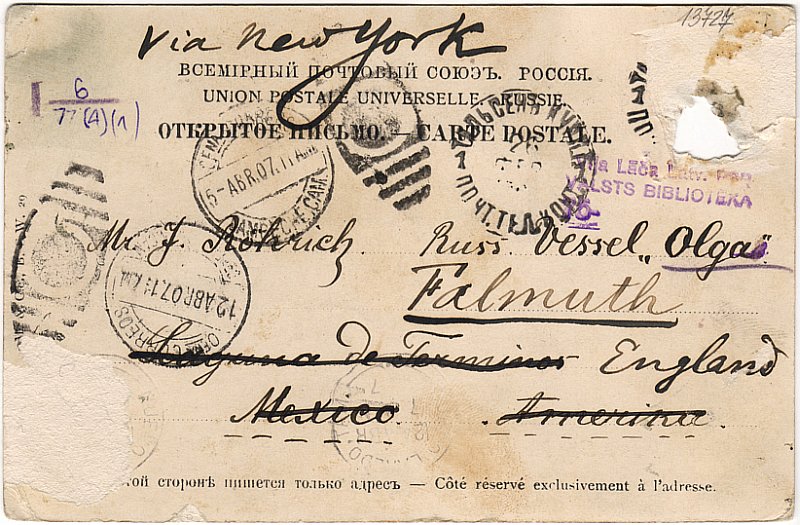 13727
Via New York
ВСЕМІРНЫЙ ПОЧТОВЫЙ СОЮЗЪ. РОССІЯ.
UNION POSTALE UNIVERSELLE. RUSSIE.
6
77(4)(1)
ОТКРЫТОЕ ПИСЬМО. — CARTE POSTALE.
5-ABR.07.11 AM
CAMPECHE.CAM.
ПОЧТ. ТЕЛ. КОНТ.
1
Vila Lāča Latv. PSR
VALSTS BIBLIOTEKA
Mr. J. Rohrich Russ. Vessel „Olga"
12 ABR.07.11
CORREOS
Falmuth
Laguna de Terminos England
Mexico Amerika
той сторонѣ пишется только адресъ — Côté réservé exclusivement à l'adresse.